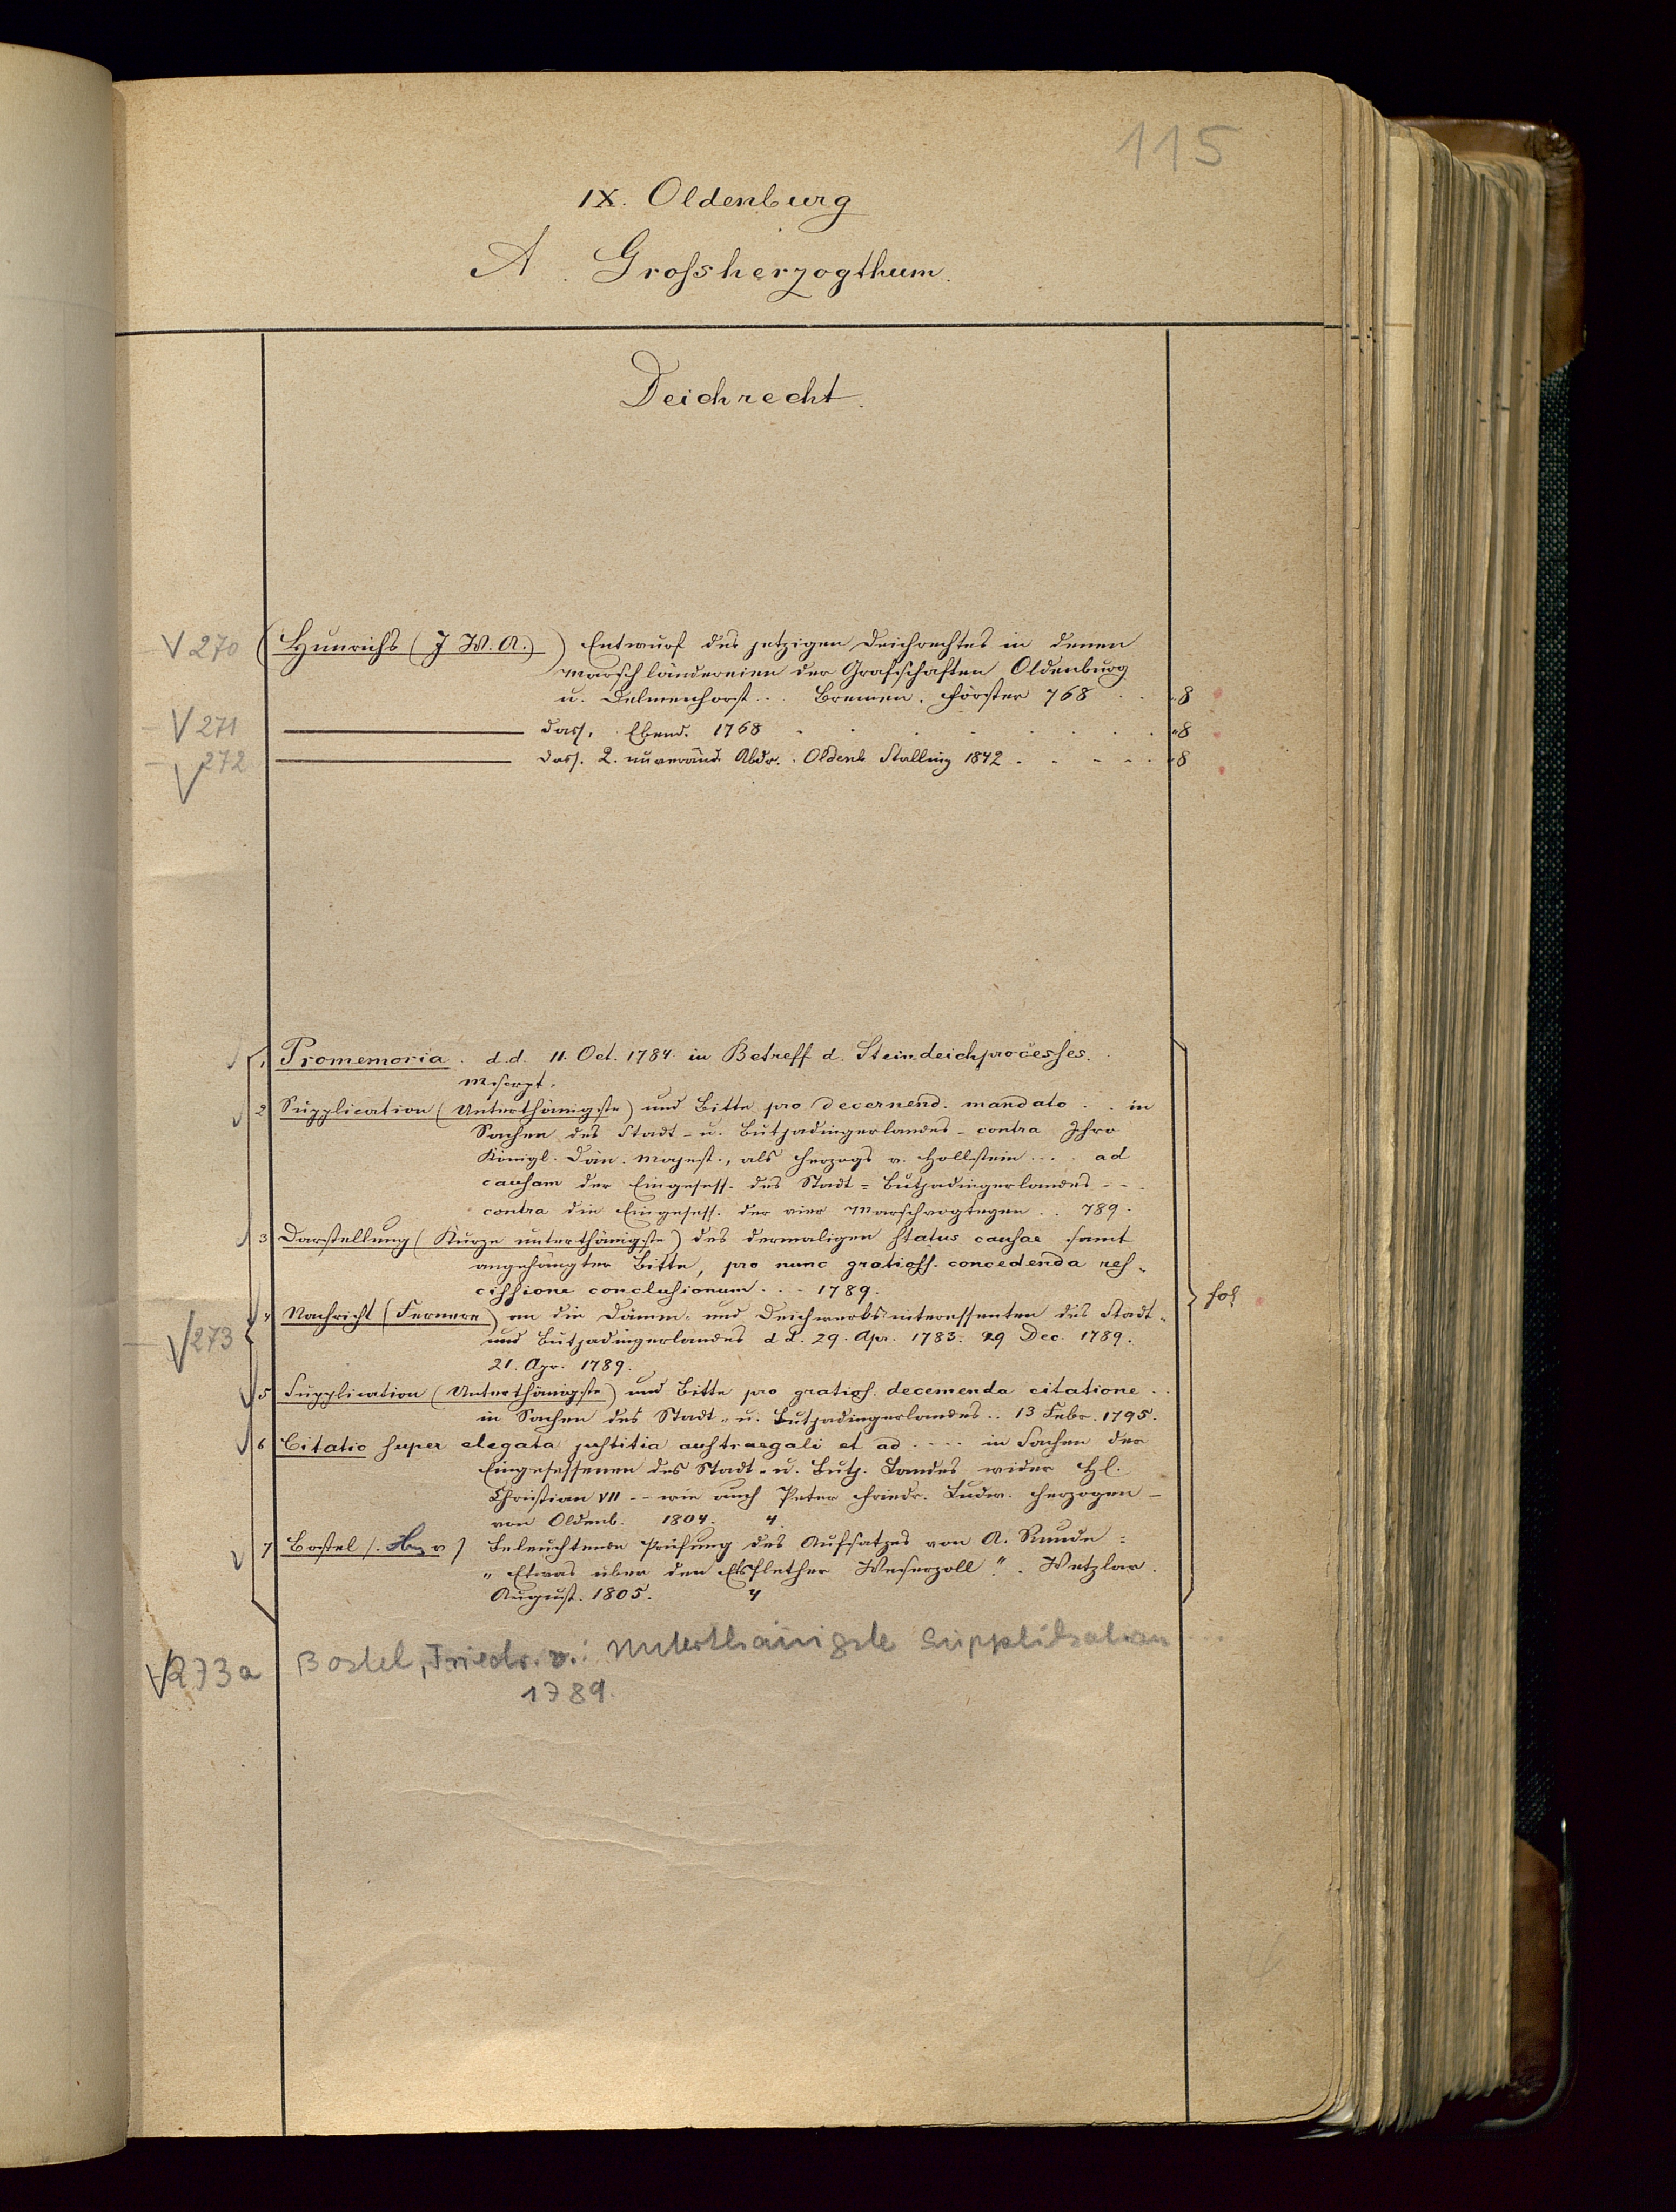 115
IX. Oldenburg
A. Grossherzogthum.
Deichrecht.
V 270 Hunrichs (J. W. A.) Entwurf des jetzigen Deichrechtes in denen
Marschländereien der Grafschaften Oldenburg
u. Delmenhorst . . . Bremen. Förster 768 . . 8
V 271 dass. Ebend. 1768 . . . . . . 8
V 272 dass. 2. unveränd. Abdr. Oldenb Stalling 1842 . . . . . 8
1 Promemoria. d.d. 11. Oct. 1784 in Betreff d. Steindeichprocesses.
Mscrpt.
2 Supplication (Unterthänigste) und Bitte pro decernend. mandato . . in
Sachen des Stadt- u. Butjadingerlandes - contra Ihro
Königl. Dän. Majest., als Herzogs v. Hollstein . . . ad
causam der Eingesess. des Stadt- Butjadingerlandes - - .
contra die Eingesess. der vier Marschvogteyen . . 789.
3 Darstellung (Kurze unterthänigste) des dermaligen status causae samt
angehängter Bitte, pro nunc gratioss. concedenda res-
cissione conclusionum . . . 1789.
fol
V 273
4 Nachricht (Fernere) an die Dämm- und Deichwerksinteressenten des Stadt-
und Butjadingerlandes d d. 29. Apr. 1783. 29 Dec. 1789.
21. Apr. 1789.
5 Supplication (Unterthänigste) und Bitte pro gratios. decernenda citatione . .
in Sachen des Stadt- u. Butjadingerlandes . . 13 Febr. 1795.
6 Citatio super elegata justitia austraegali et ad . . . . in Sachen der
Eingesessenen des Stadt- u. Butj. Landes wider Hl.
Christian VII - - wie auch Peter Friedr. Ludw. Herzogen -
von Oldenb. 1804. 4.
7 Bostel (. v) Beleuchtende Prüfung des Aufsatzes von A. Runde =
„Etwas über den Elsflether Weserzoll". Wetzlar.
August. 1805. 4
V 273a Bostel, Friedr. v.: Unterthänigste Supplikation . . .
1789.